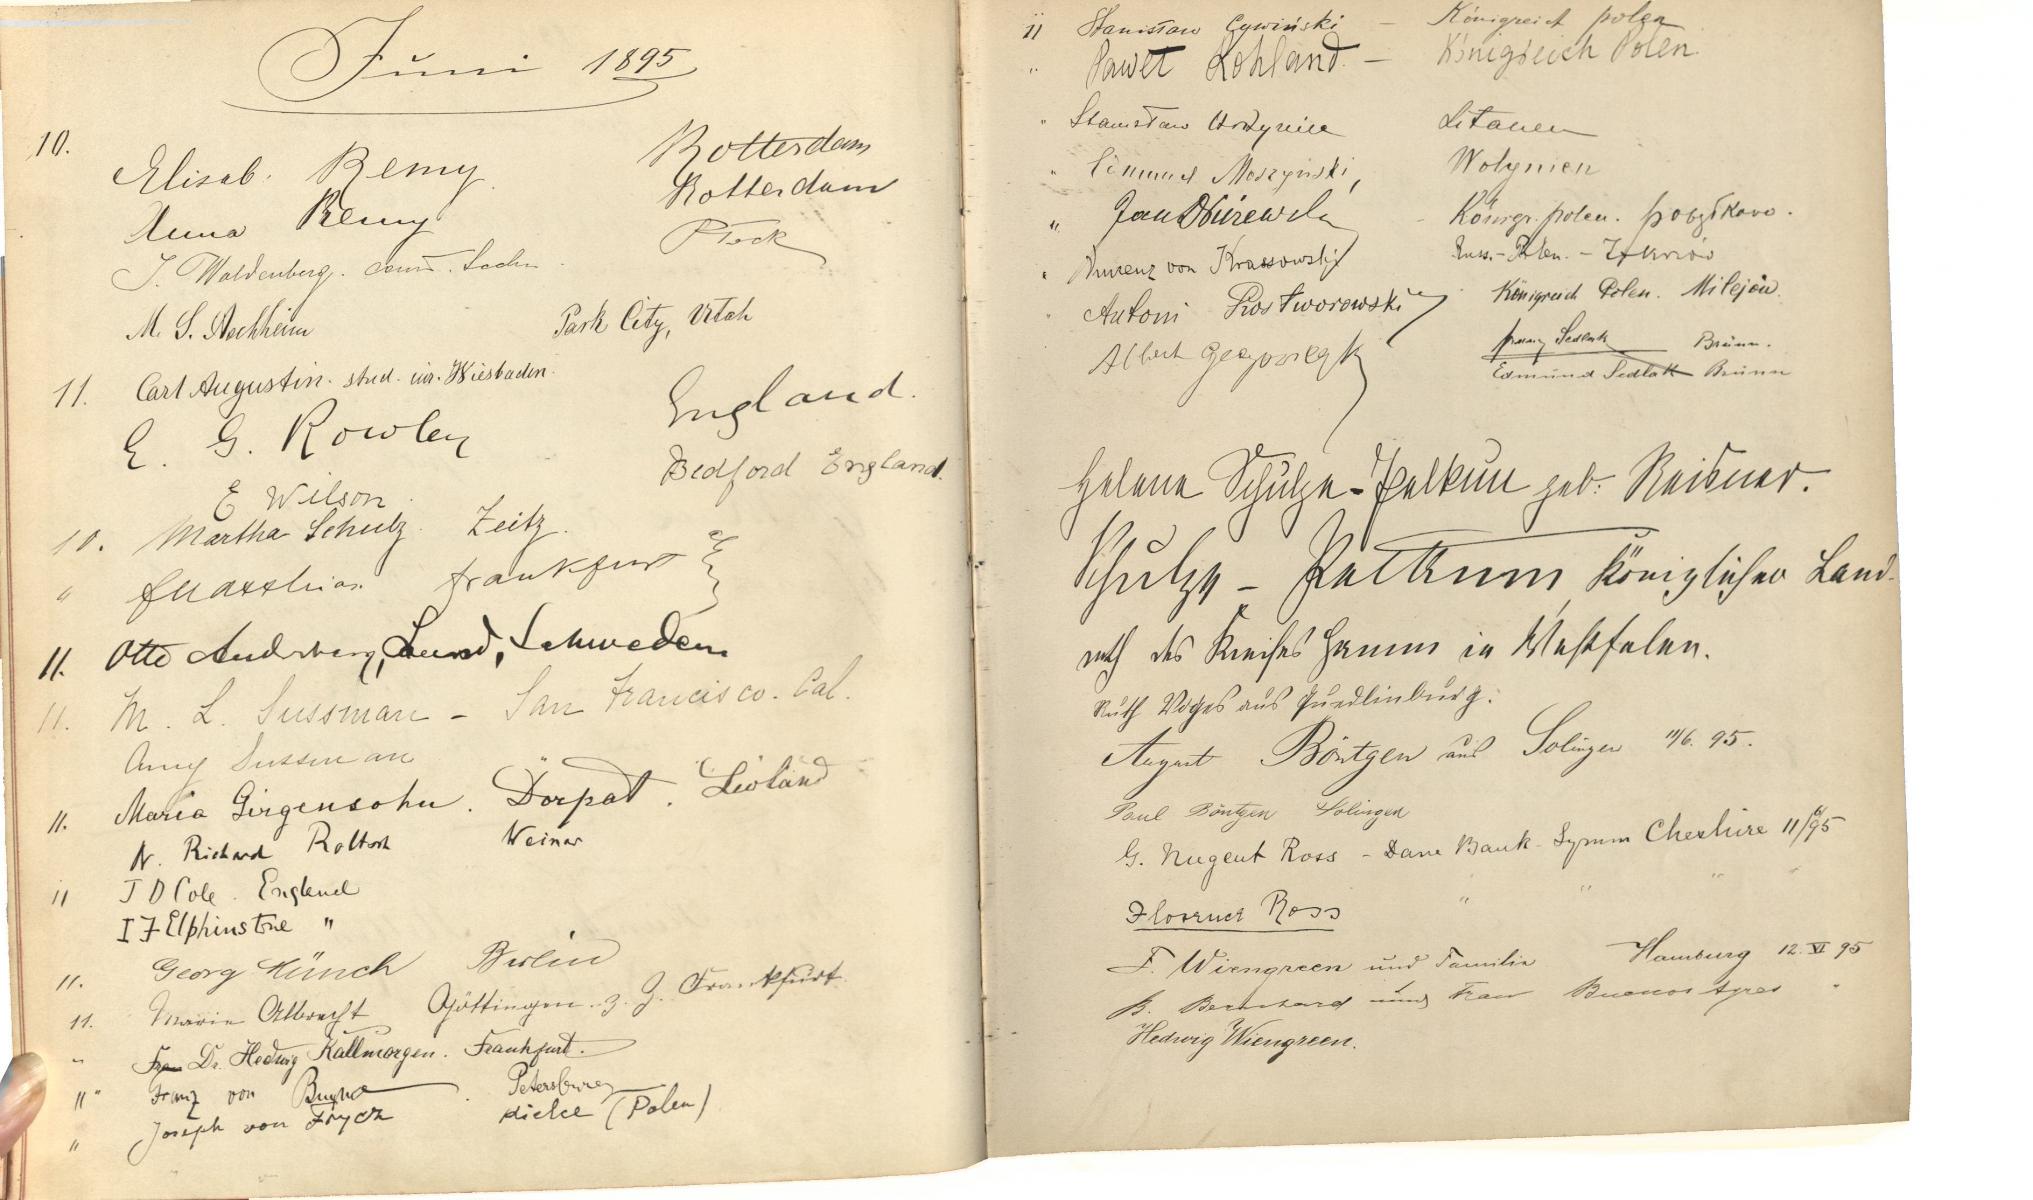 Juni 1895
10.
Elisab. Remy Rotterdam
Anna Remy Rotterdam
J. Waldenberg. Plock
M. S. Aschheim Park City, Utah
11. Carl Augustin. stud. iur. Wiesbaden.
E. G. Rowley England.
E Wilson Bedford England.
10. Martha Schulz Zeitz.
" Frankfurt
11. Otto Lund, Schweden
11. M. L. Sussman - San Francisco. Cal.
Amy Sussman
11. Maria Girgensohn. Dorpat. Livland
N. Richard Weimar
11 J D Cole. England
I F Elphinstone "
11. Georg Münch Berlin
11. Marie Albrecht Göttingen. z. Z. Frankfurt.
" Frau Dr. Hedwig Kallmorgen. Frankfurt.
11" Franz von Petersburg
" Joseph von Frycz Kielce (Polen)
11 Stanisław Cywiński - Königreich Polen
" Paweł Lohland - Königreich Polen
" Stanisław Litauen
" Moszyński, Wolynien
" Jan Königr. Polen.
" von Krassowski Russ.-Polen. -
" Antoni Rostworowski Königreich Polen. Milejów.
Albert
Franz Sedlak Brünn.
Edmund Sedlak Brünn
Helene Schulze-Pelkum geb. Reisner.
Schulze-Pelkum Königlicher Land-
rath des Kreises Hamm in Westfalen.
Ruth Voges aus Quedlinburg.
August Böntgen aus Solingen 11/6. 95.
Paul Böntgen Solingen
G. Nugent Ross - Dane Bank - Lymm Cheshire 11/6 95
Florence Ross " " " "
F. Wiengreen und Familie Hamburg 12. VI 95
B. Bernhard und Frau Buenos Ayres "
Hedwig Wiengreen.